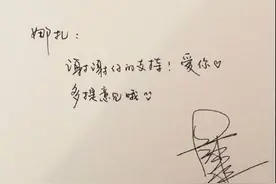 娜扎:
谢谢你的支持!爱你♡
多提意见哦♡